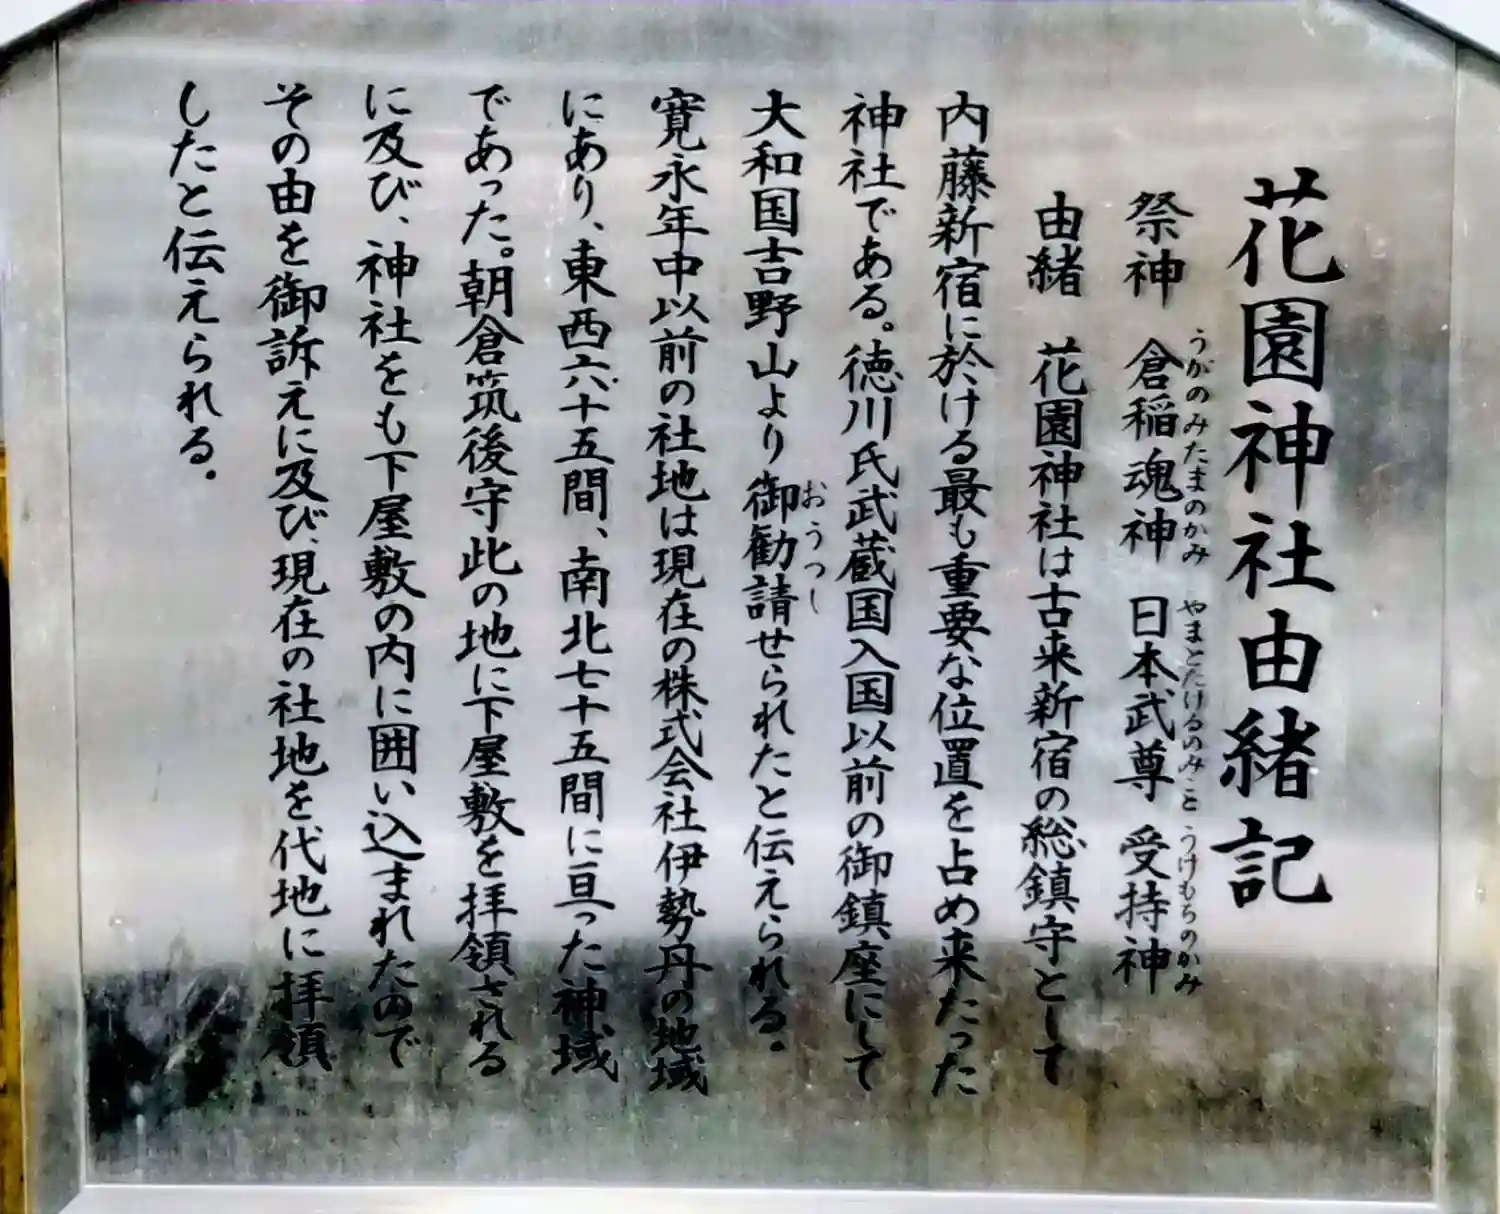 花園神社由緒記
祭神　倉稲魂神　日本武尊　受持神
うがのみたまのかみ　やまとたけるのみこと　うけもちのかみ
由緒　花園神社は古来新宿の総鎮守として
内藤新宿に於ける最も重要な位置を占め来たった
神社である。徳川氏武蔵国入国以前の御鎮座にして
大和国吉野山より御勧請せられたと伝えられる。
おうつし
寛永年中以前の社地は現在の株式会社伊勢丹の地域
にあり、東西六十五間、南北七十五間に亘った神域
であった。朝倉筑後守此の地に下屋敷を拝領される
に及び、神社をも下屋敷の内に囲い込まれたので
その由を御訴えに及び、現在の社地を代地に拝領
したと伝えられる。